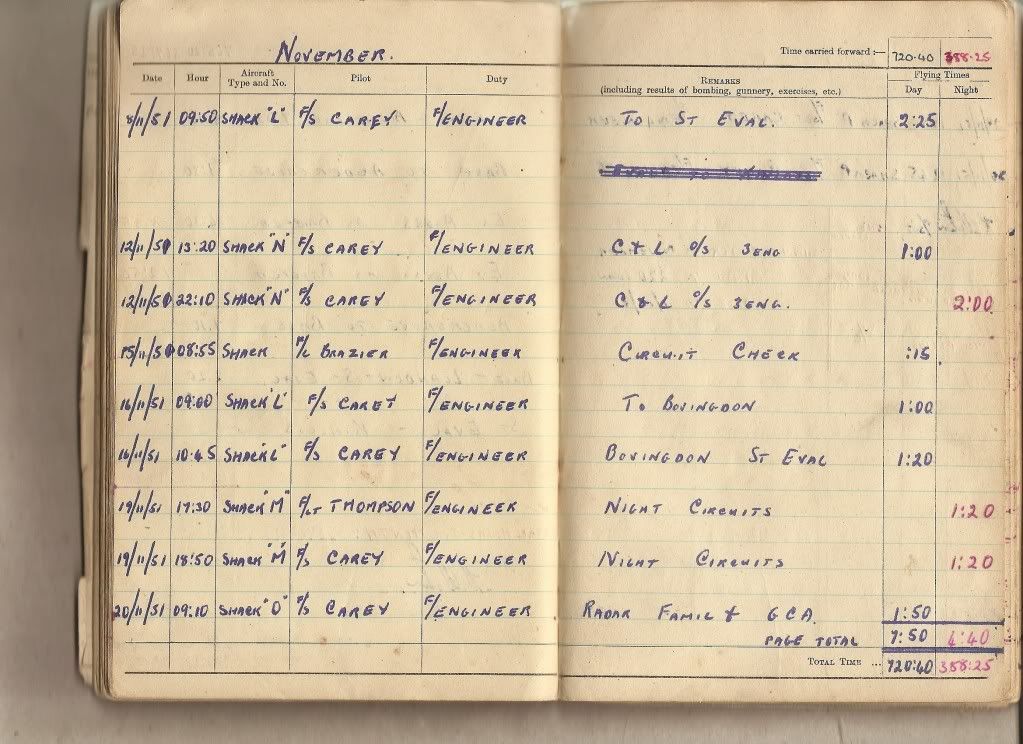 NOVEMBER. Time carried forward :— 720·40 388·25
Date Hour Aircraft Type and No. Pilot Duty REMARKS (including results of bombing, gunnery, exercises, etc.) Flying Times Day Night
8/11/51 09:50 SHACK "L" F/S CAREY F/ENGINEER TO ST EVAL. 2:25
12/11/51 13:20 SHACK "N" F/S CAREY F/ENGINEER C & L O/S 3 ENG 1:00
12/11/51 22:10 SHACK "N" F/S CAREY F/ENGINEER C & L O/S 3 ENG. 2:00
15/11/51 08:55 SHACK BRAZIER F/ENGINEER CIRCUIT CHECK :15
16/11/51 09:00 SHACK "L" F/S CAREY F/ENGINEER TO BOVINGDON 1:00
16/11/51 10:45 SHACK "L" F/S CAREY F/ENGINEER BOVINGDON ST EVAL 1:20
19/11/51 17:30 SHACK "M" F/LT THOMPSON F/ENGINEER NIGHT CIRCUITS 1:20
19/11/51 18:50 SHACK "M" F/S CAREY F/ENGINEER NIGHT CIRCUITS 1:20
20/11/51 09:10 SHACK "O" F/S CAREY F/ENGINEER RADAR FAMIL & GCA. 1:50
PAGE TOTAL 7:50 4:40
TOTAL TIME ... 720:40 388:25